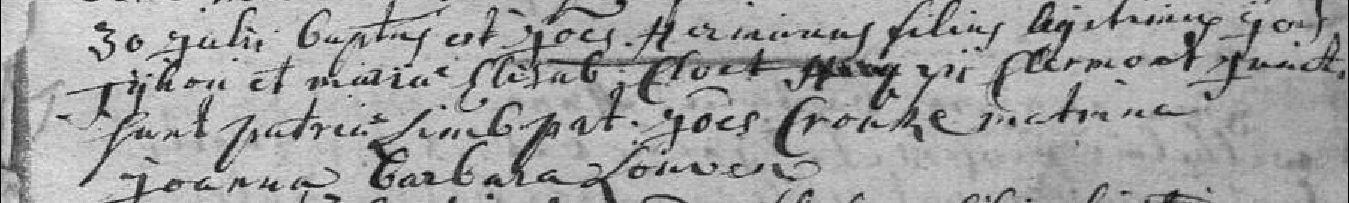 30 julii baptus est joes Herminus filius legitimus jois
Tyhon et mariae Elisab. Cloet Clermont
sunt patriae Limb pat. joes Cronke matrina
joanna barbara Louver